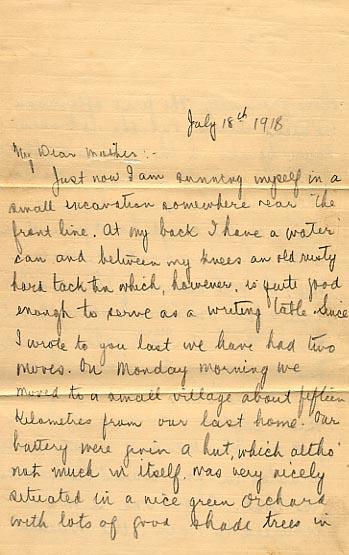 July 18th 1918
My Dear Mother:-
Just now I am sunning myself in a
small excavation somewhere near the
front line. At my back I have a water
can and between my knees an old rusty
hard tack tin which, however, is quite good
enough to serve as a writing table. Since
I wrote to you last we have had two
moves. On Monday morning we
moved to a small village about fifteen
kilometres from our last home. Our
battery were given a hut, which altho'
not much in itself, was very nicely
situated in a nice green orchard
with lots of good shade trees in